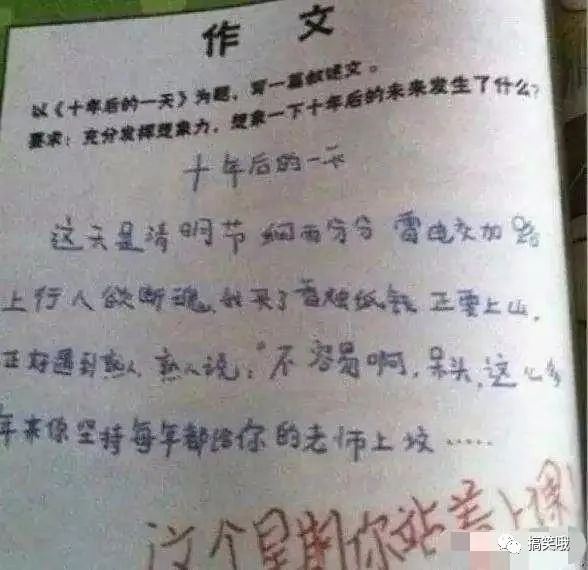 作 文
以《十年后的一天》为题，写一篇叙述文。
要求：充分发挥想象力，想象一下十年后的未来发生了什么？
十年后的一天
这天是清明节 细雨纷纷 雷电交加 路
上行人欲断魂，我买了香烛纸钱 正要上山，
正好遇到熟人，熟人说：“不容易啊，呆头，这么多
年来你坚持每年都给你的老师上坟……
这个星期你站着上课
搞笑哦